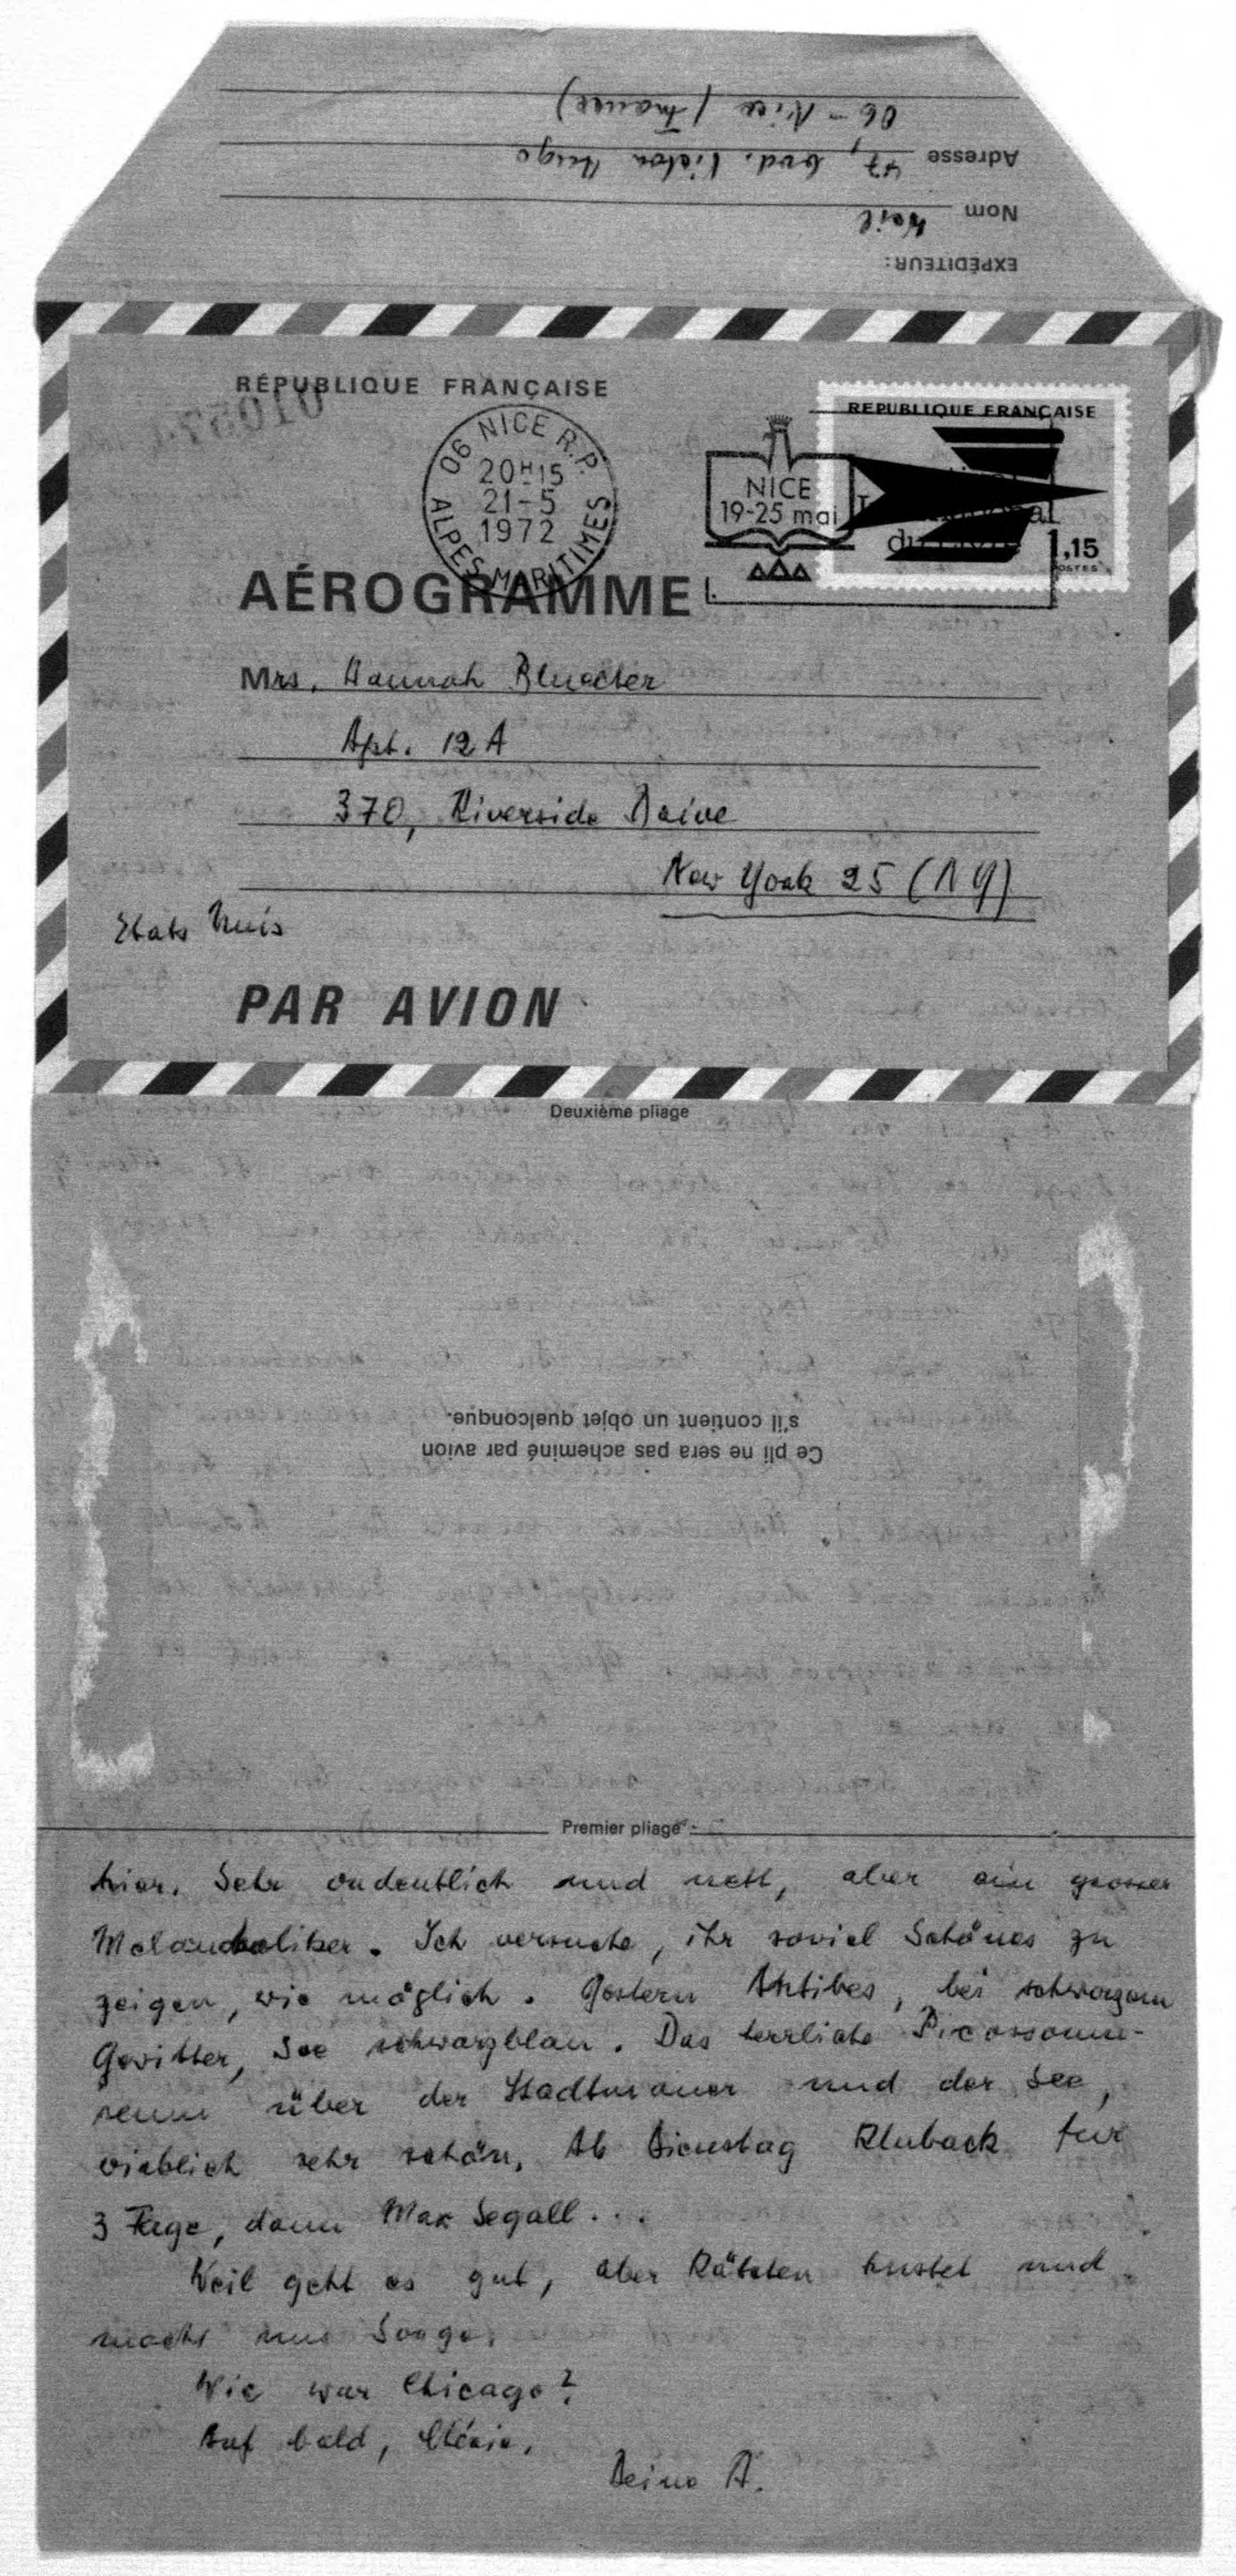 EXPÉDITEUR:
Nom Weil
Adresse 47, bvd. Victor Hugo
06 - Nice (France)
RÉPUBLIQUE FRANÇAISE
06 NICE R.P.
20H15
21-5
1972
ALPES-MARITIMES
NICE
19-25 mai
du Livre
REPUBLIQUE FRANÇAISE
1,15
POSTES
AÉROGRAMME
Mrs. Hannah Bluecher
Apt. 12 A
370, Riverside Drive
New York 25 (NY)
Etats Unis
PAR AVION
Deuxième pliage
Ce pli ne sera pas acheminé par avion
s'il contient un objet quelconque.
Premier pliage
hier. Sehr ordentlich und nett, aber ein grosser
Melancholiker. Ich versuche, ihr soviel Schönes zu
zeigen, wie möglich. Gestern Antibes, bei schwarzem
Gewitter, See schwarzblau. Das herrliche Picassomu-
seum über der Stadtmauer und der See,
wirklich sehr schön. Ab Dienstag Kluback fur
3 Tage, dann Max Segall...
Weil geht es gut, aber Kätchen hustet und
macht uns Sorge.
Wie war Chicago?
Auf bald, Chérie,
Deine A.